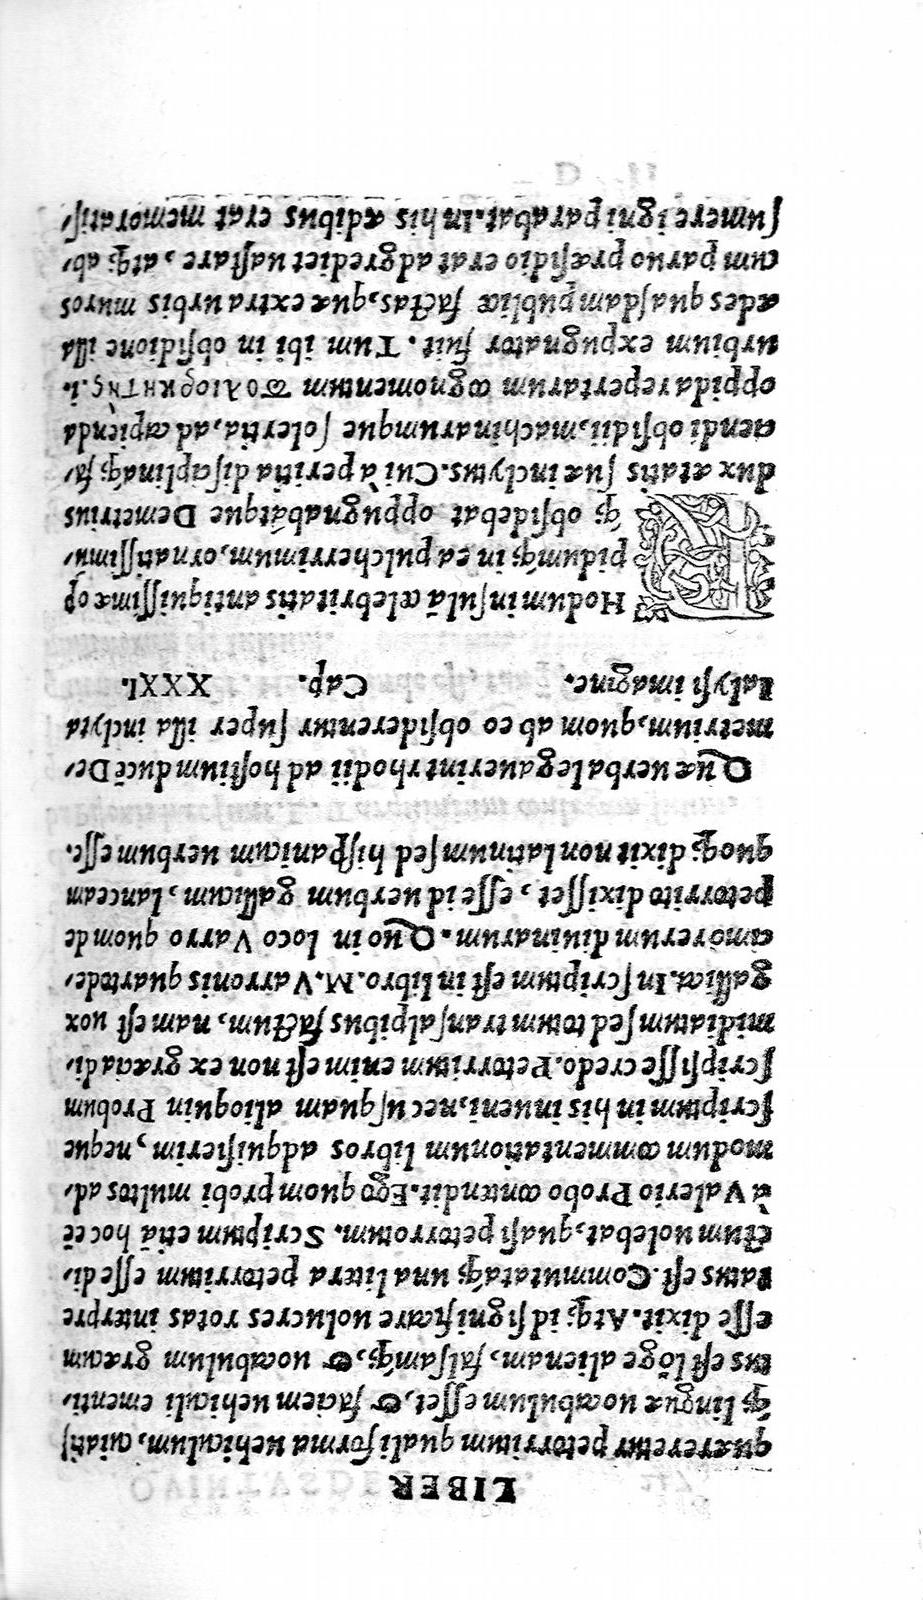 LIBER
quæreretur petorritum quali forma uehiculum, cuiatisq;
q; linguæ uocabulum esset, & faciem uehiculi ementi,
tus est lōge alienam, falsamq;, & uocabulum græcum
esse dixit. Atq; id significare uolucres rotas interpre
tatus est. Commutataq; una litera petorritum esse di,
ctum uolebat, quasi petorrotum. Scriptum etiā hoc eē
à Valerio Probo contendit. Ego quom probi multos ad,
modum commentationum libros adquisierim, neque
scriptum in his inueni, nec usquam alioquin Probum
scripsisse credo. Petorritum enim est non ex græcia di,
midiatum sed totum transalpibus factum, nam est uox
gallica. In scriptum est in libro. M. Varronis quartode,
cimo rerum diuinarum. Quo in loco Varro quom de
petorrito dixisset, esse id uerbum gallicum, Lanceam
quoq; dixit non latinum sed hispanicum uerbum esse.
Quæ uerba legauerint rhodii ad hostium ducē De,
metrium, quom ab eo obsiderentur super illa inclyta
Ialysi imagine. Cap. XXXI.
RHodum insulā celebritatis antiquissimæ op
pidumq; in ea pulcherrimum, ornatissimū,
q; obsidebat oppugnabátque Demetrius
dux ætatis suæ inclytus. Cui à peritia disciplinaq; fa,
ciendi obsidii, machinarumque solertia, ad capienda
oppida repertarum cognomentum πολιορκητής. i.
urbium expugnator fuit. Tum ibi in obsidione illa
ædes quasdam publicæ factas, quæ extra urbis muros
cum paruo præsidio erat adgredi et uastare, atq; ab,
sumere igni parabat. In his ædibus erat memoratis,